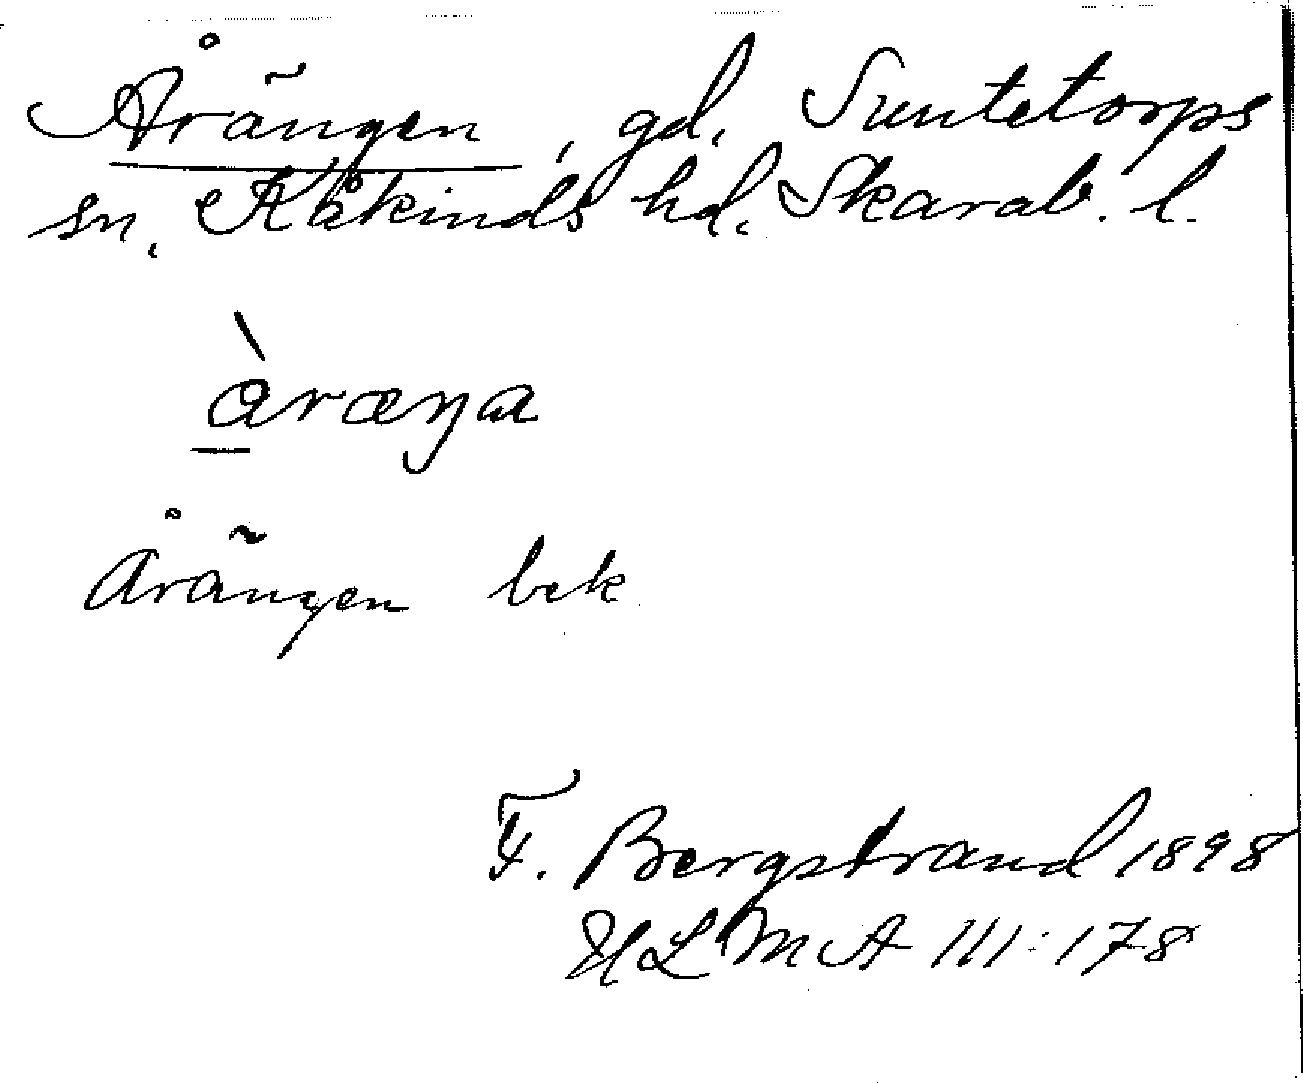 Årängen, gd. Suntetorps
sn. Kåkinds hd. Skarab. l.
å̀ræŋa
Årängen bek
F. Bergstrand 1898
ULMA 111:178